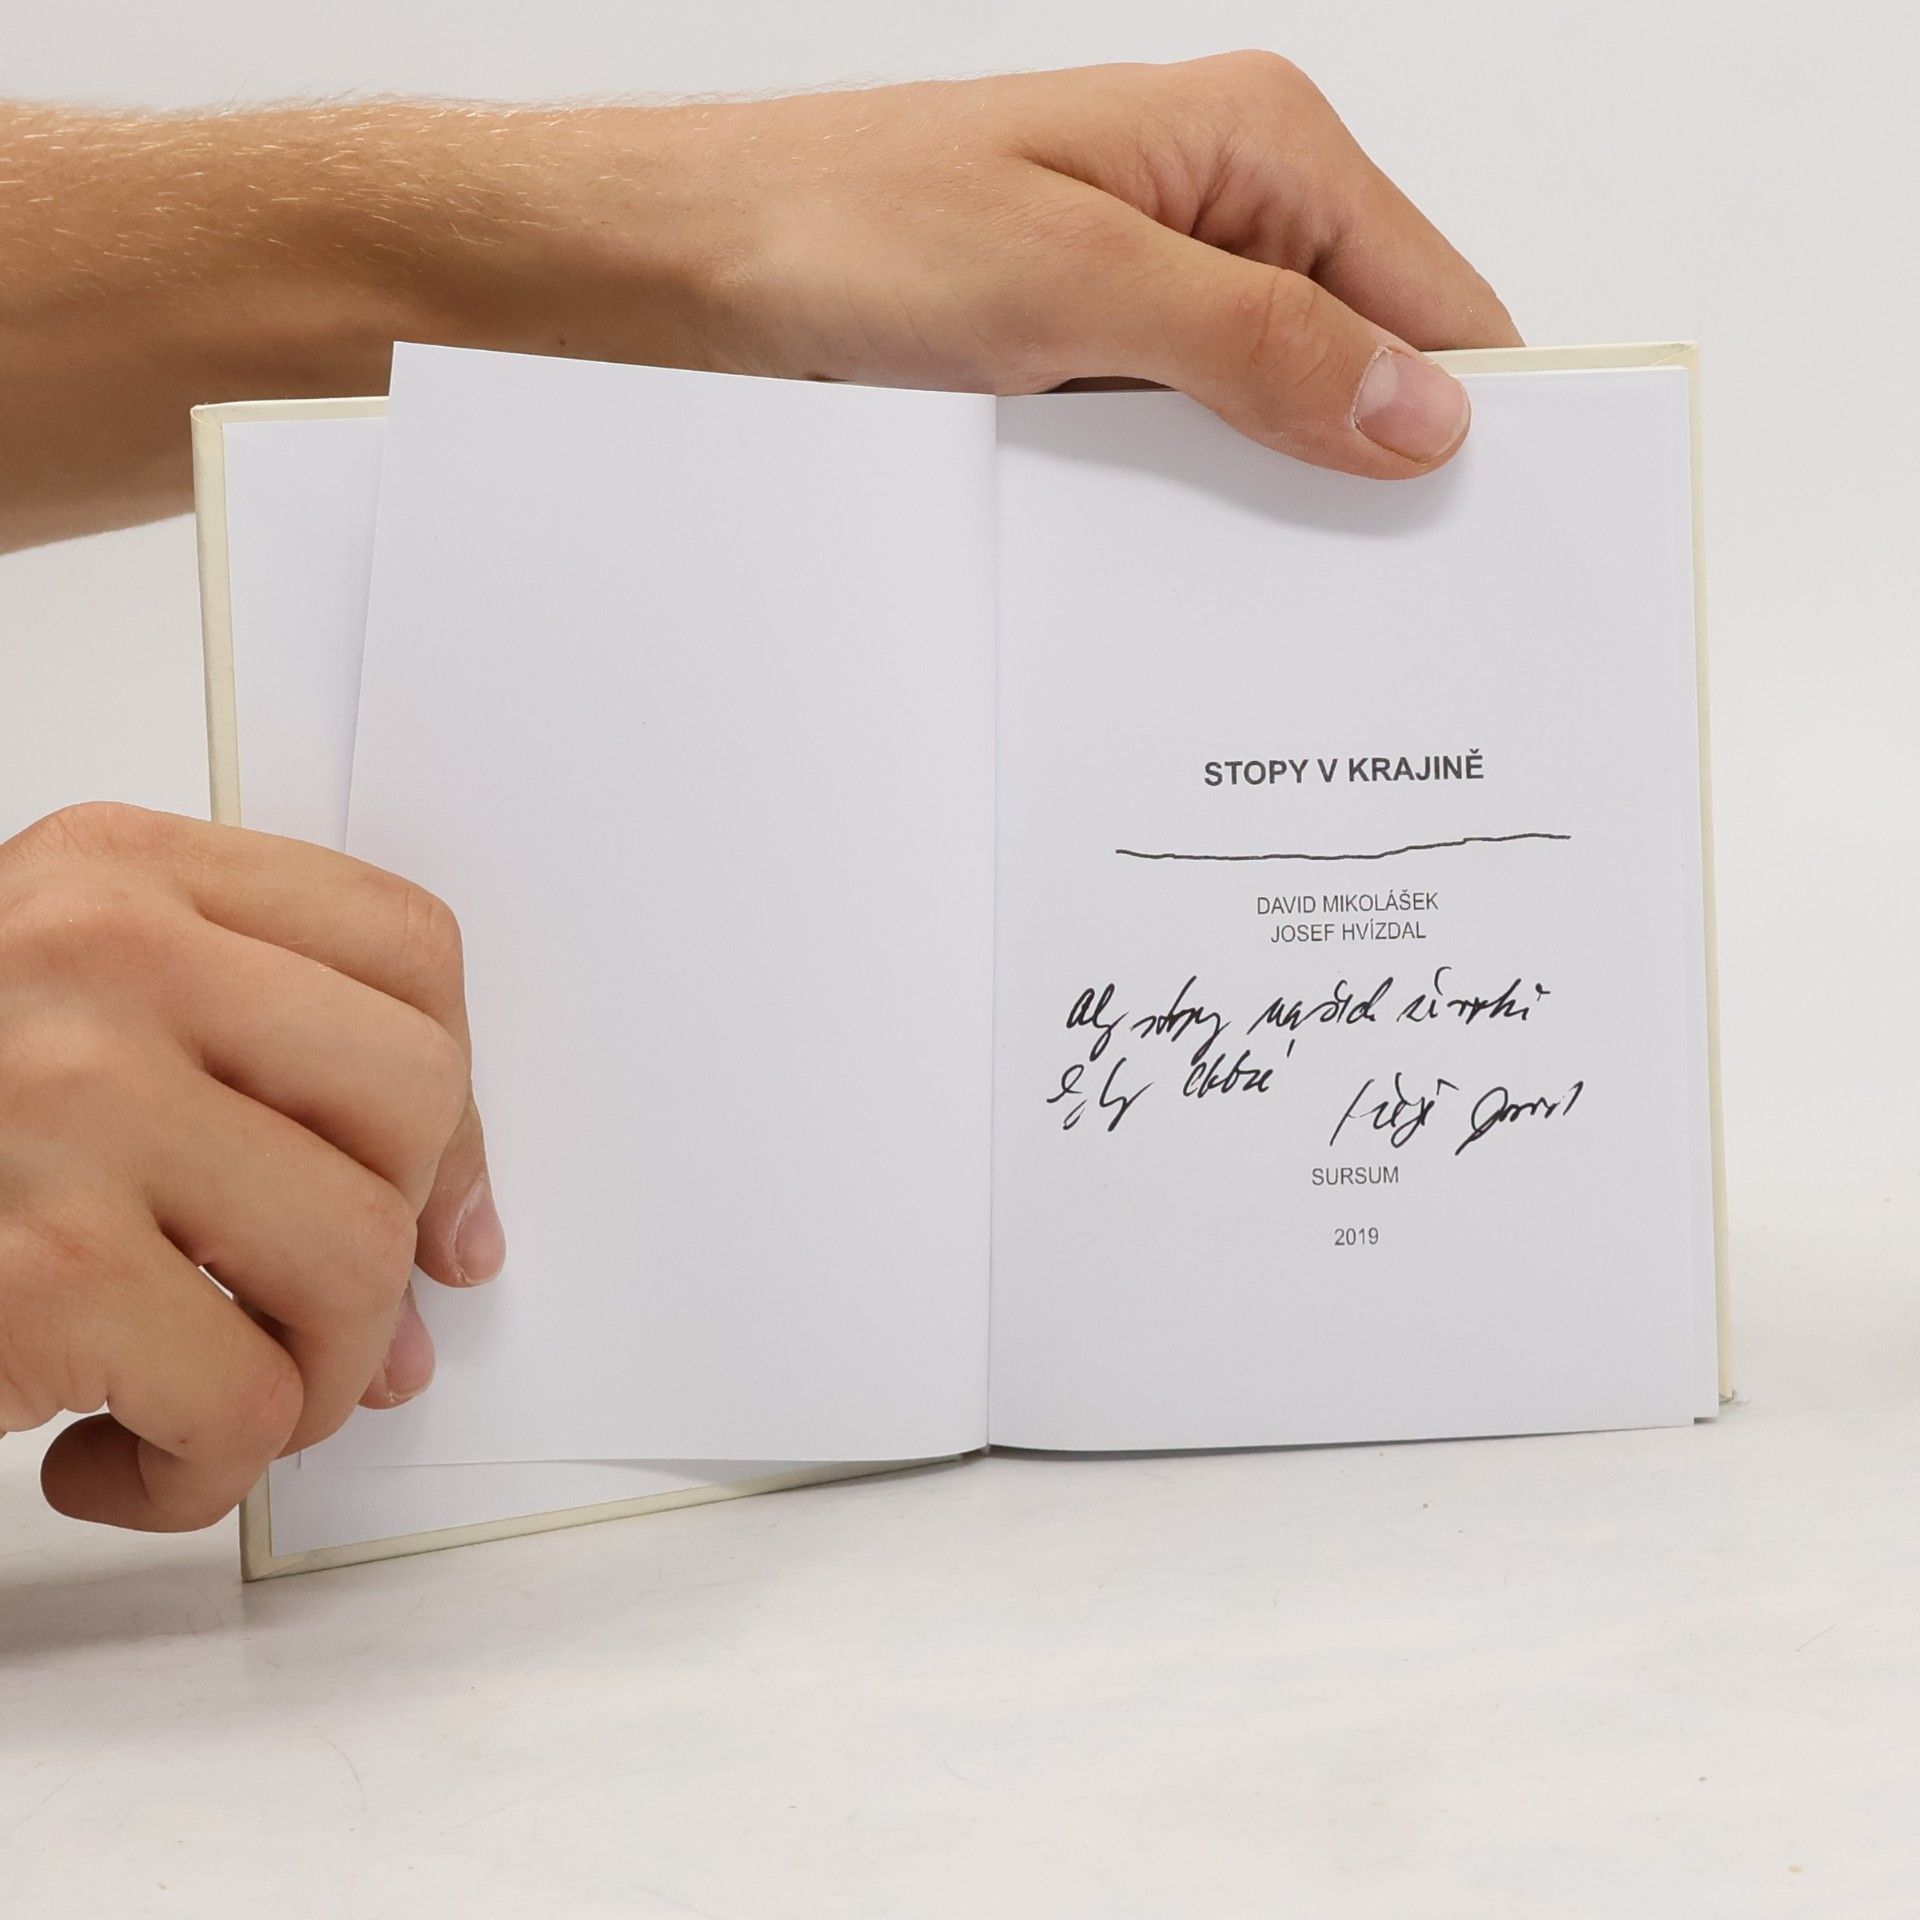 STOPY V KRAJINĚ
DAVID MIKOLÁŠEK
JOSEF HVÍZDAL
Aby stopy našich
byly dobré
přeje David
SURSUM
2019